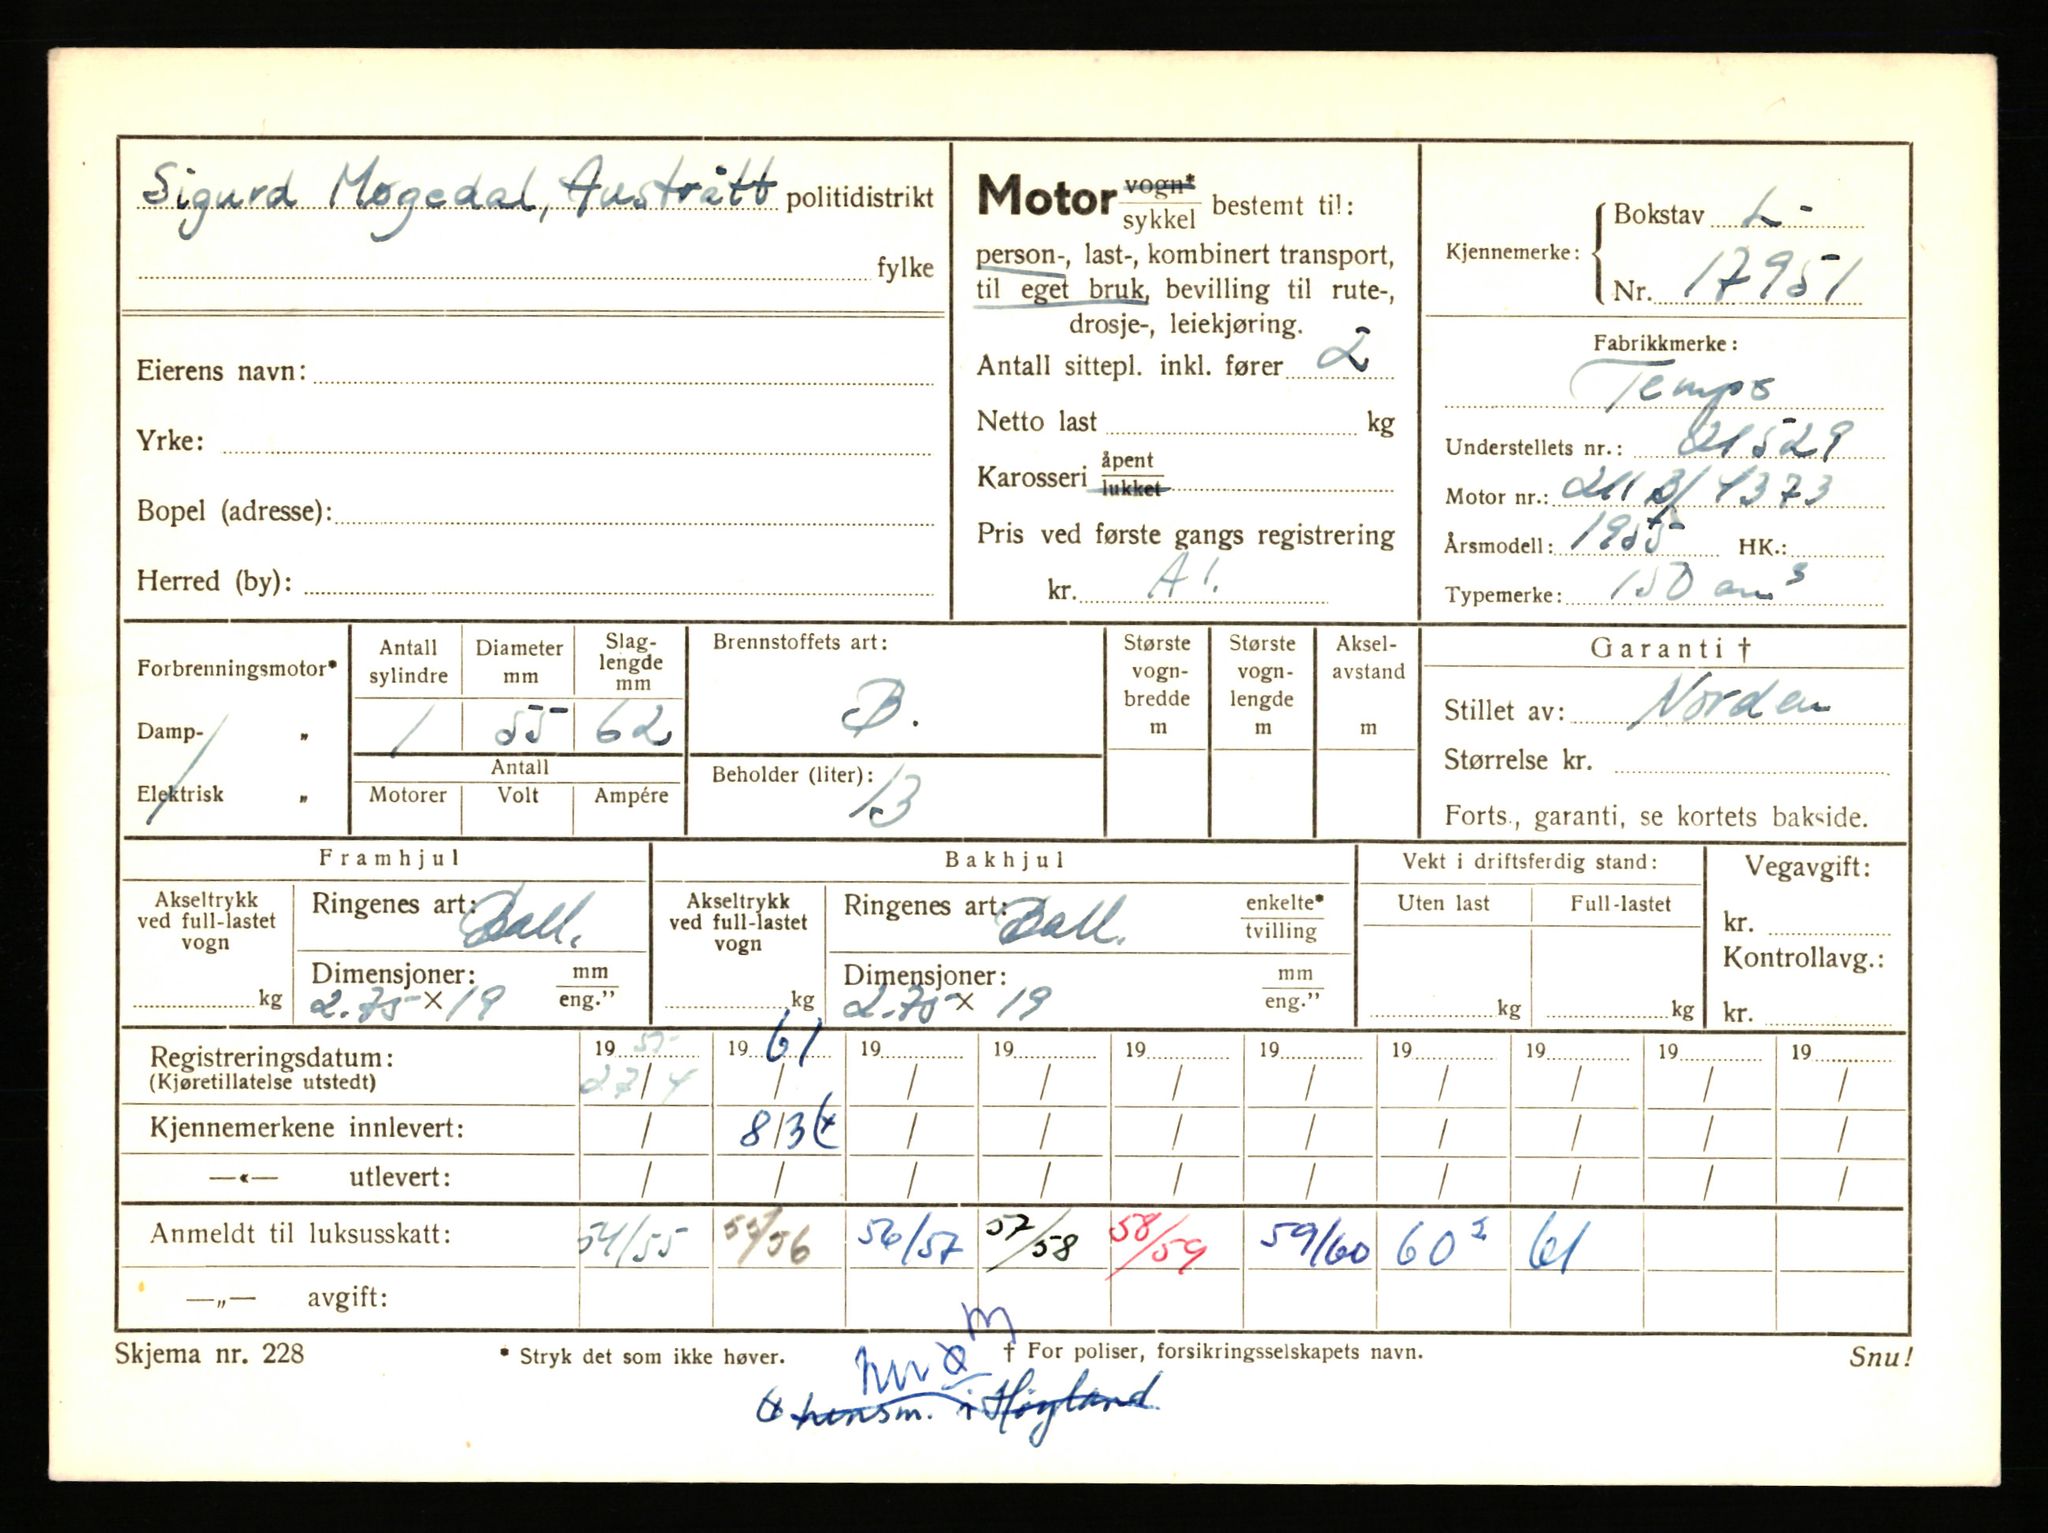 Sigurd Møgedal, Austrått politidistrikt
fylke
Eierens navn:
Yrke:
Bopel (adresse):
Herred (by):
Motor vogn* / sykkel bestemt til:
person-, last-, kombinert transport,
til eget bruk, bevilling til rute-,
drosje-, leiekjøring.
Antall sittepl. inkl. fører 2
Netto last kg
Karosseri åpent / lukket
Pris ved første gangs registrering
kr. A!.
Kjennemerke: Bokstav L-
Nr. 17951
Fabrikkmerke:
Tempo
Understellets nr.: 21529
Motor nr.: 2113/1373
Årsmodell: 1955 HK.:
Typemerke: 150 cm³
Forbrenningsmotor*
Damp- „
Elektrisk „
Antall sylindre
1
Diameter mm
55
Slag-lengde mm
62
Antall
Motorer Volt Ampére
Brennstoffets art:
B.
Beholder (liter):
13
Største vogn-bredde m
Største vogn-lengde m
Aksel-avstand m
Garanti †
Stillet av: Norden
Størrelse kr.
Forts., garanti, se kortets bakside.
Framhjul
Akseltrykk ved full-lastet vogn
kg
Ringenes art: Ball.
Dimensjoner: mm / eng.”
2.75 × 19
Bakhjul
Akseltrykk ved full-lastet vogn
kg
Ringenes art: Ball. enkelte* / tvilling
Dimensjoner: mm / eng.”
2.75 × 19
Vekt i driftsferdig stand:
Uten last Full-lastet
kg kg
Vegavgift:
kr.
Kontrollavg.:
kr.
Registreringsdatum: 1955 1961 19 19 19 19 19 19 19 19
(Kjøretillatelse utstedt) 27/4 / / / / / / / / /
Kjennemerkene innlevert: / 8/3 / / / / / / / /
—«— utlevert: / / / / / / / / / /
Anmeldt til luksusskatt: 54/55 55/56 56/57 57/58 58/59 59/60 60² 61
—„— avgift:
Skjema nr. 228 * Stryk det som ikke høver. † For poliser, forsikringsselskapets navn. Snu!
lensm. i Høyland